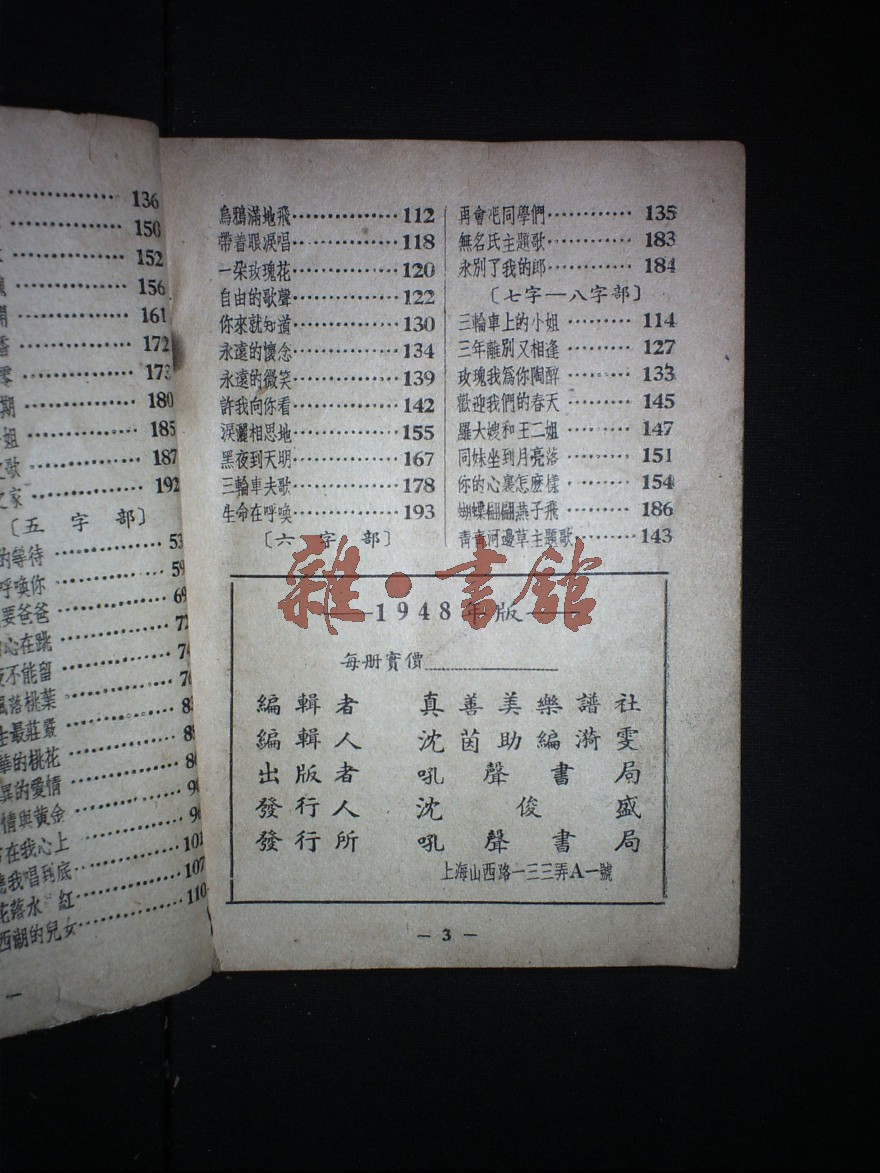 136
150
152
156
161
172
173
期 180
姐 185
之歌 187
之家 192
〔五字部〕
的等待 53
呼喚你 59
要爸爸 69
心在跳 72
不能留 74
風落桃葉 76
最莊嚴
的桃花
異的愛情
情與黃金
在我心上 101
我唱到底 107
花落水紅 110
西湖的兒女
烏鴉滿地飛 112
帶着眼淚唱 118
一朶玫瑰花 120
自由的歌聲 122
你來就知道 130
永遠的懷念 134
永遠的微笑 139
許我向你看 142
淚灑相思地 155
黑夜到天明 167
三輪車夫歌 178
生命在呼喚 193
〔六字部〕
再會吧同學們 135
無名氏主題歌 183
永別了我的郎 184
〔七字—八字部〕
三輪車上的小姐 114
三年離別又相逢 127
玫瑰我爲你陶醉 133
歡迎我們的春天 145
羅大嫂和王二姐 147
同妹坐到月亮落 151
你的心裏怎麽樣 154
蝴蝶翩翩燕子飛 186
靑靑河邊草主題歌 143
雜·書館
1948年版
每册實價
編輯者 真善美樂譜社
編輯人 沈茵助編漪雯
出版者 吼聲書局
發行人 沈俊盛
發行所 吼聲書局
上海山西路一三三弄A一號
— 3 —